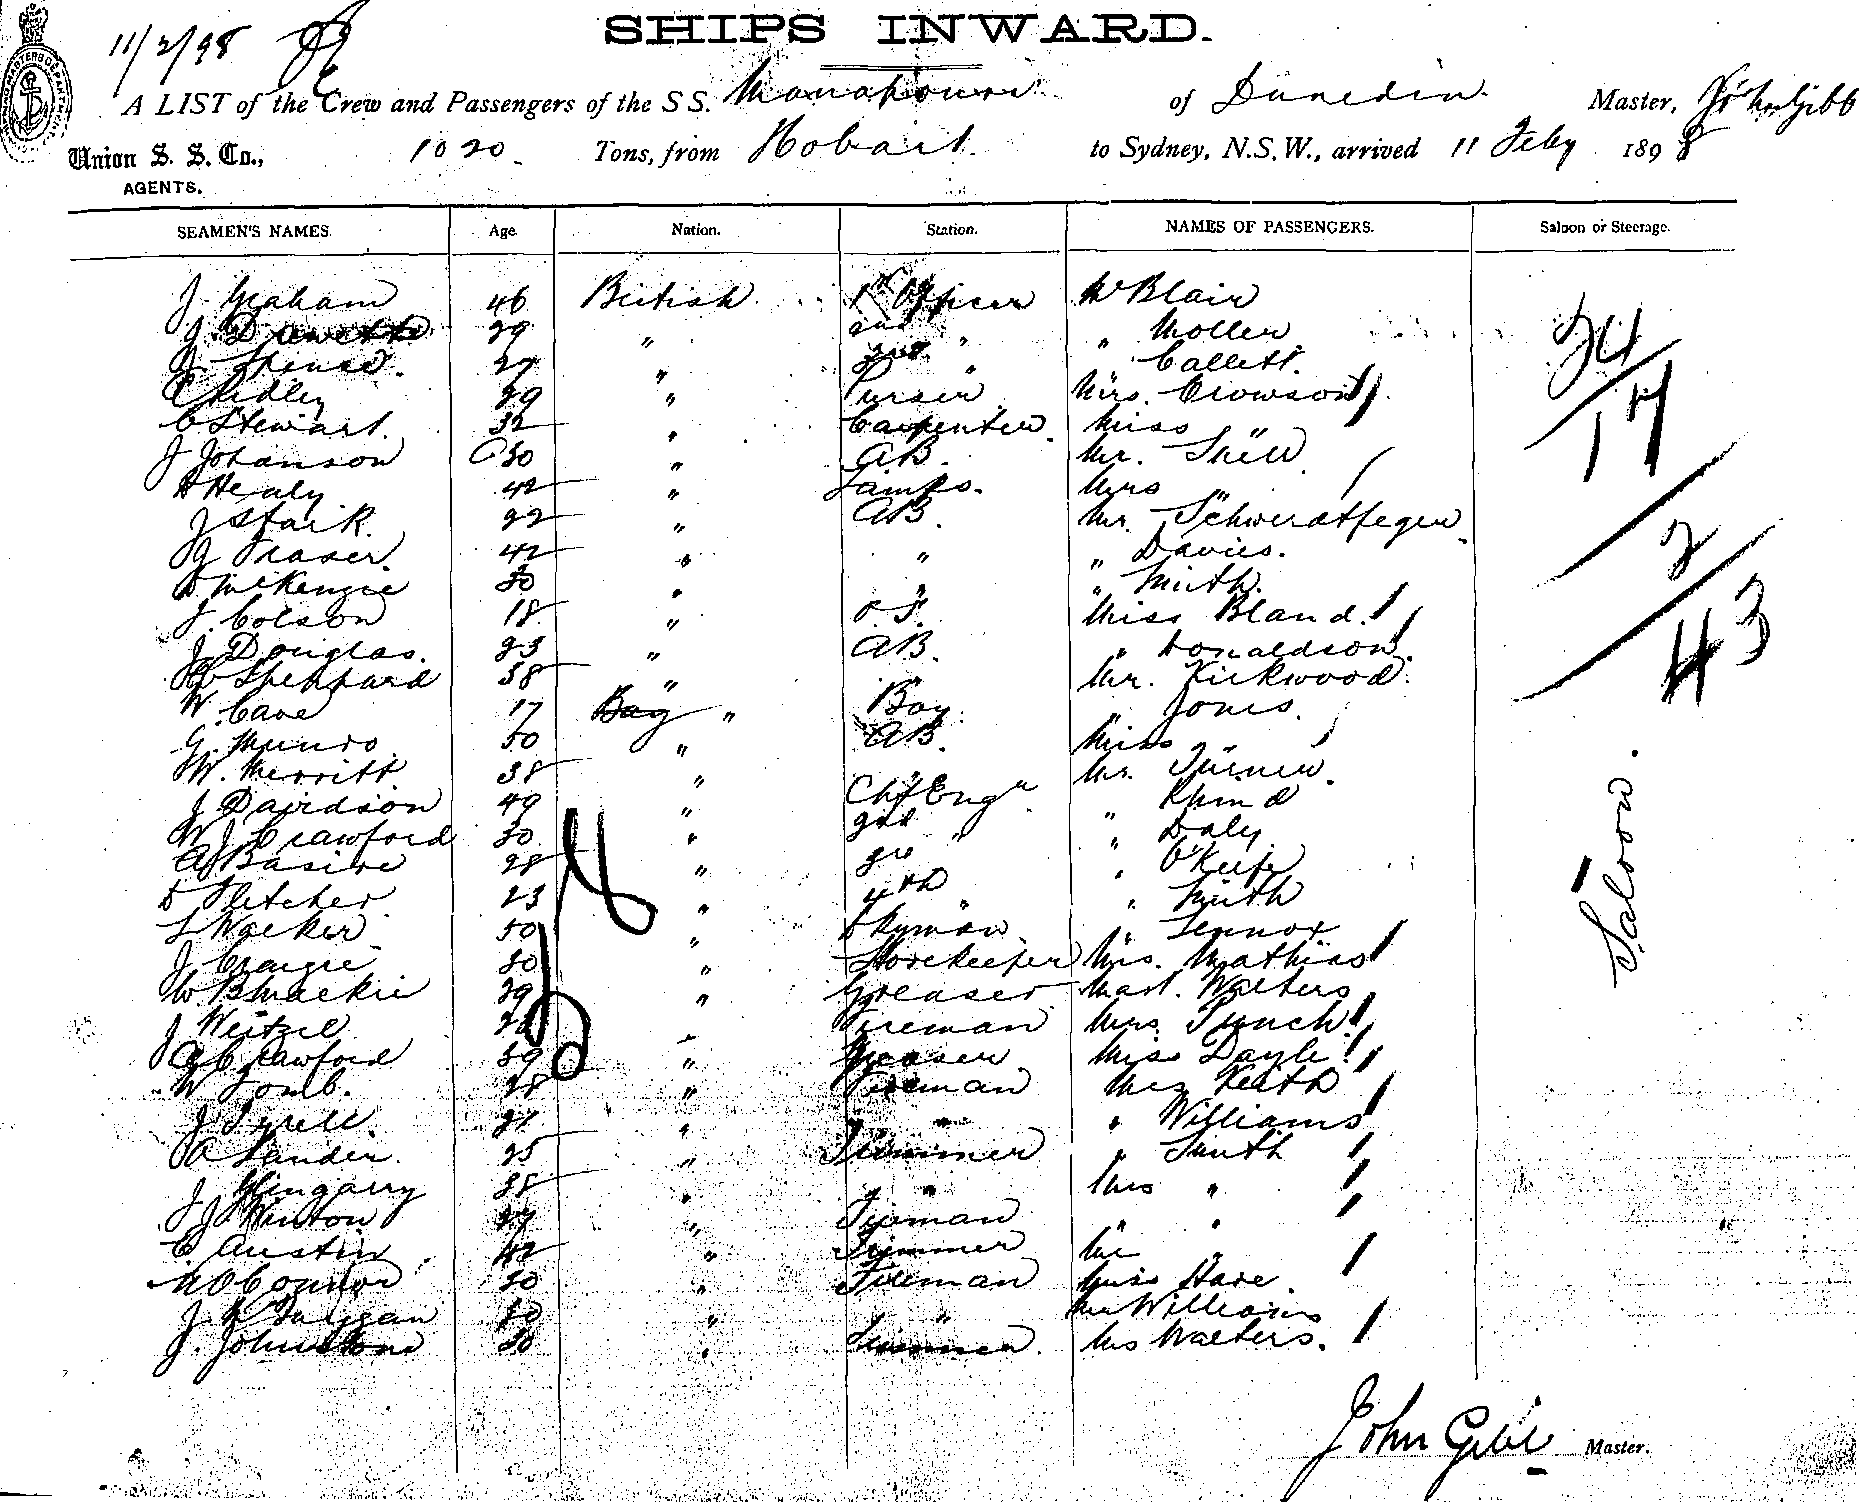 SHIPS INWARD.
11/2/98
A LIST of the Crew and Passengers of the S S. Manapouri of Dunedin Master, John Gibb
Union S. S. Co., 1020 Tons, from Hobart to Sydney, N.S.W., arrived 11 Feby 1898
AGENTS.
SEAMEN'S NAMES. Age. Nation. Station. NAMES OF PASSENGERS. Saloon or Steerage.
J Graham 46 British 1st Officer Mr Blair
J. 29 " 2nd " " Moller
J. Spence. 27 " 3rd " Callett.
C Ridley 29 " Purser Mrs. Crowson
C Stewart. 32 " Carpenter. Miss "
J Johanson 30 " AB. Mr. Snell
Healy 42 " Lamps. Mrs "
J Stark. 22 " AB. Mr. Schwerdtfeger.
J Fraser. 42 " " " Davies.
D McKenzie 30 " " " Smith.
J. Colson 18 " O.S. Miss Bland.
J. Douglas. 23 " AB. " Donaldson.
Sheppard 38 " " Mr. Kirkwood.
W. Cave 17 Boy " Boy. " Jones.
G. Munro 50 " AB. Miss "
W. Merritt. 38 " " Mr. Turner.
J Davidson 49 " Chf Engr " Rhind
W J Crawford 30 " 2nd " " Daly
A Basire 28 " 3rd " O'Keefe
D Fletcher 23 " 4th " " Smith
L Walker 50 " Dkyman " Lennox
J Craigie 30 " Storekeeper Mrs. Mathias
W B Mackie 29 " Greaser Mast. Walters
J Weitzel " Fireman Mrs. Punch
A C Crawford 39 " Greaser Miss Dayle
W Lomb. 28 " Fireman Mrs Keith
J Tyrell. " " " Williams
A Lander. 25 " Trimmer " Smith
J Gingarry 38 " " Miss "
J Winton 27 " Fireman " "
C Austin 42 " Trimmer Mr
M O'Connor 30 " Fireman Miss Hare.
J. Duggan 30 " " Mr Williams
J. Johnstone 30 " Trimmer. Mrs Walters.
24
17
2
43
Saloon.
John Gibb Master.